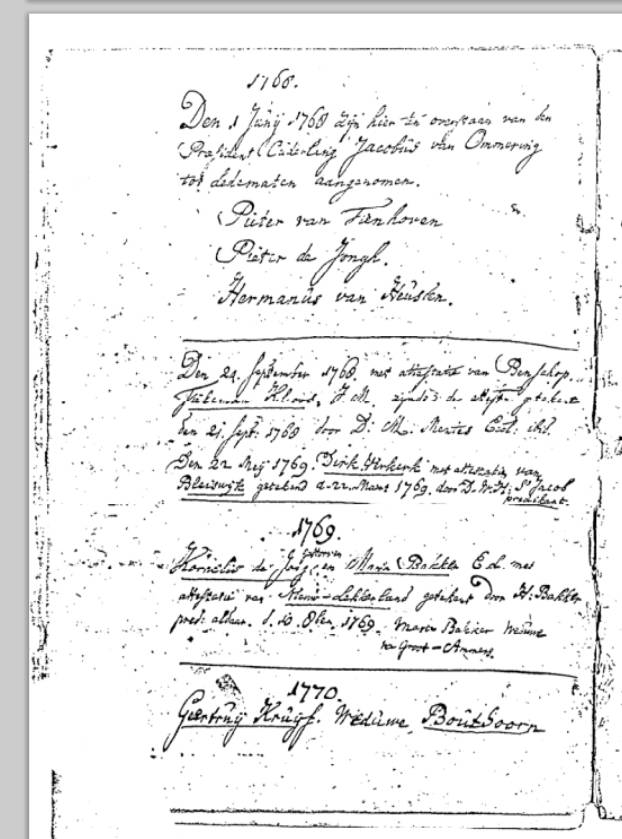 1768.
Den 1 Junij 1768 zijn hier in overstaan van den
Præsident Ouderling Jacobus van Ommering
tot ledematen aangenomen.
Pieter van Tienhoven
Pieter de Jongh.
Hermanus van Heusden.
Den 24. September 1768. met attestatie van Benschop.
J.M. zijnde de attest. getekent
den 21. Sept. 1768 door D: M. Eccl. ibid.
Den 22 Meij 1769. Dirk Verkerk met attestatie van
Bleiswijk getekend d. 22. Maart 1769. door D. W. H: St Jacob
predikant.
1769.
gestorven
Kornelis de Jong, en Maria Bakker E.L. met
attestatie van Nieuw-Lekkerland getekent door H: Bakker
pred: aldaar. d. 10. 1769. Maria Bakker Weduwe
te Groot-Ammers.
1770.
Geertruij Kruyf. Weduwe Bouthoorn